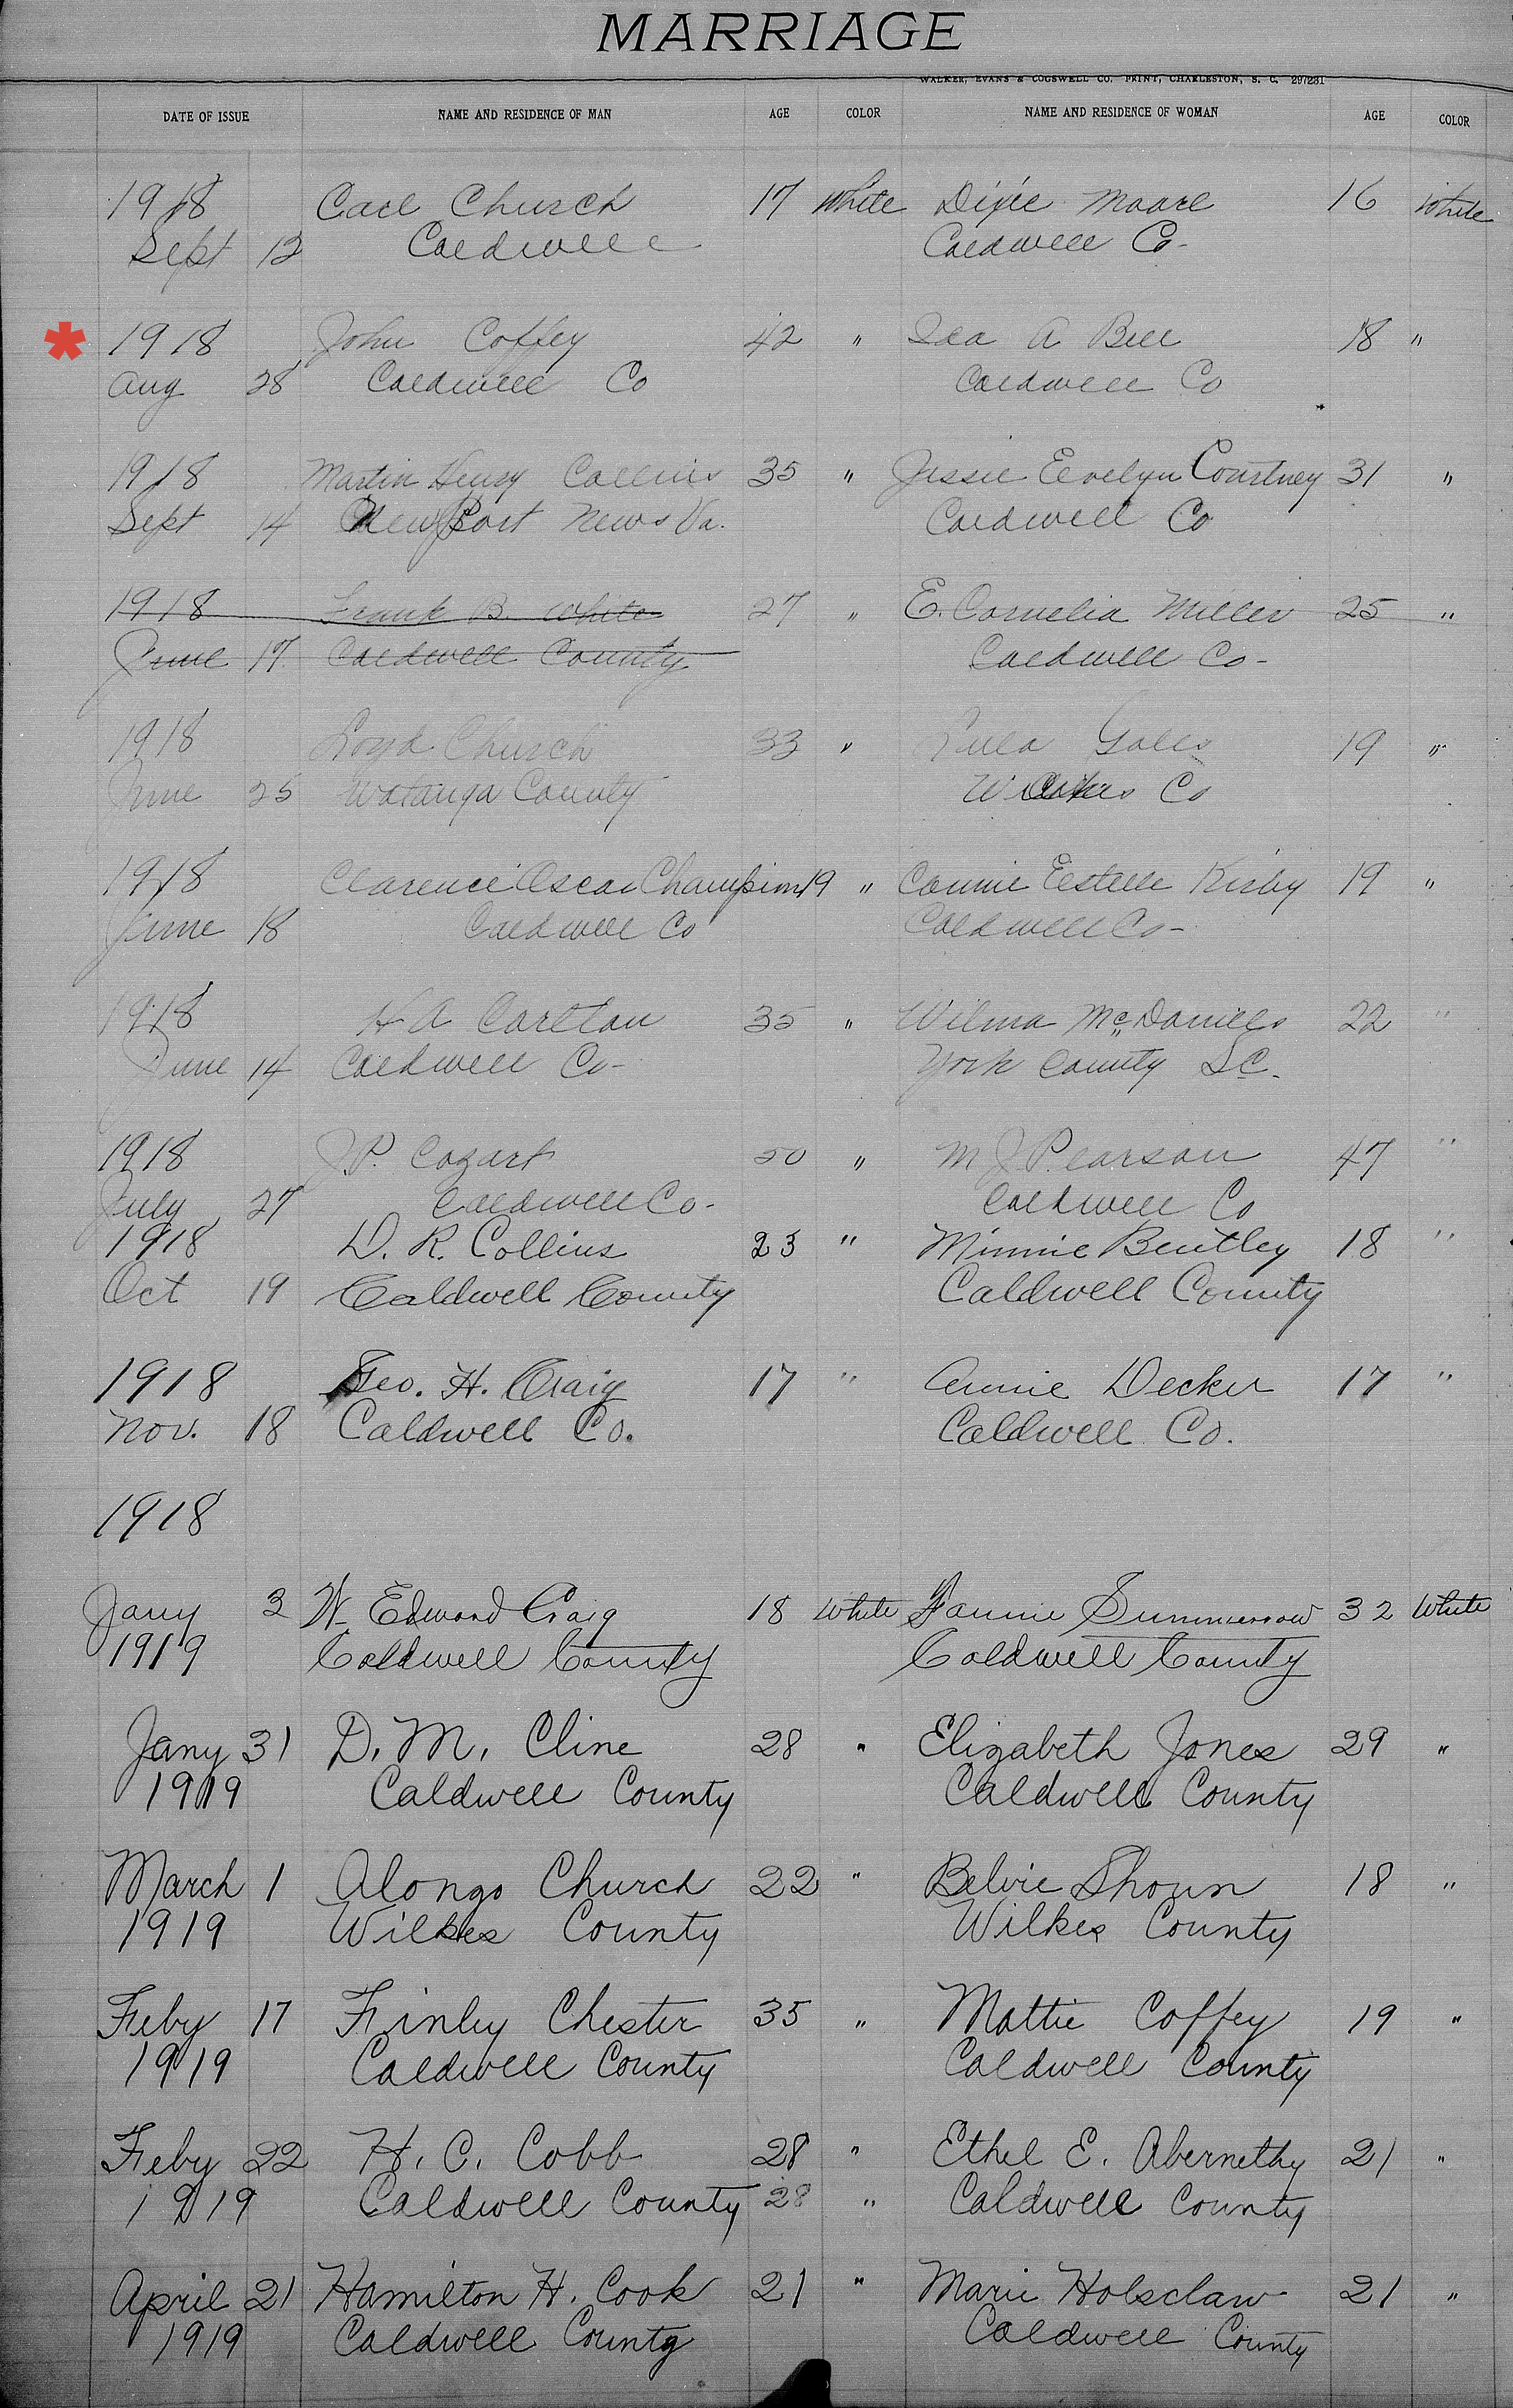 MARRIAGE
WALKER, EVANS & COGSWELL CO. PRINT, CHARLESTON, S. C. 297231
DATE OF ISSUE NAME AND RESIDENCE OF MAN AGE COLOR NAME AND RESIDENCE OF WOMAN AGE COLOR
1918 Carl Church 17 White Dixie Moore 16 White
Sept 12 Caldwell Caldwell Co-
* 1918 John Coffey 42 " Ida A Bell 18 "
Aug 28 Caldwell Co Caldwell Co
1918 Martin Henry Collins 35 " Jessie Eevelyn Courtney 31 "
Sept 14 New Port News Va. Caldwell Co
1918 Frank B. White 27 " E. Cornelia Miller 25 "
June 17 Caldwell County Caldwell Co-
1918 Loyd Church 33 " Lula Gales 19 "
June 25 Watauga County Wilkes Co
1918 Clarence Oscar Champion 19 " Connie Estelle Kirby 19 "
June 18 Caldwell Co Caldwell Co-
1918 H A Carlton 35 " Wilma McDaniels 22 "
June 14 Caldwell Co- York County S.C.
1918 J.P. Cozart 50 " M J Pearson 47 "
July 27 Caldwell Co- Caldwell Co
1918 D. R. Collins 23 " Minnie Bentley 18 "
Oct 19 Caldwell County Caldwell County
1918 Geo. H. Craig 17 " Annie Decker 17 "
Nov. 18 Caldwell Co. Caldwell Co.
1918
Jany 3 W. Edward Craig 18 White Fannie Summerrow 32 White
1919 Caldwell County Caldwell County
Jany 31 D. M. Cline 28 " Elizabeth Jones 29 "
1919 Caldwell County Caldwell County
March 1 Alonzo Church 22 " Belvie Shoun 18 "
1919 Wilkes County Wilkes County
Feby 17 Finley Chester 35 " Mattie Coffey 19 "
1919 Caldwell County Caldwell County
Feby 22 H. C. Cobb 28 " Ethel E. Abernethy 21 "
1919 Caldwell County 28 " Caldwell County
April 21 Hamilton H. Cook 21 " Marie Holsclaw 21 "
1919 Caldwell County Caldwell County